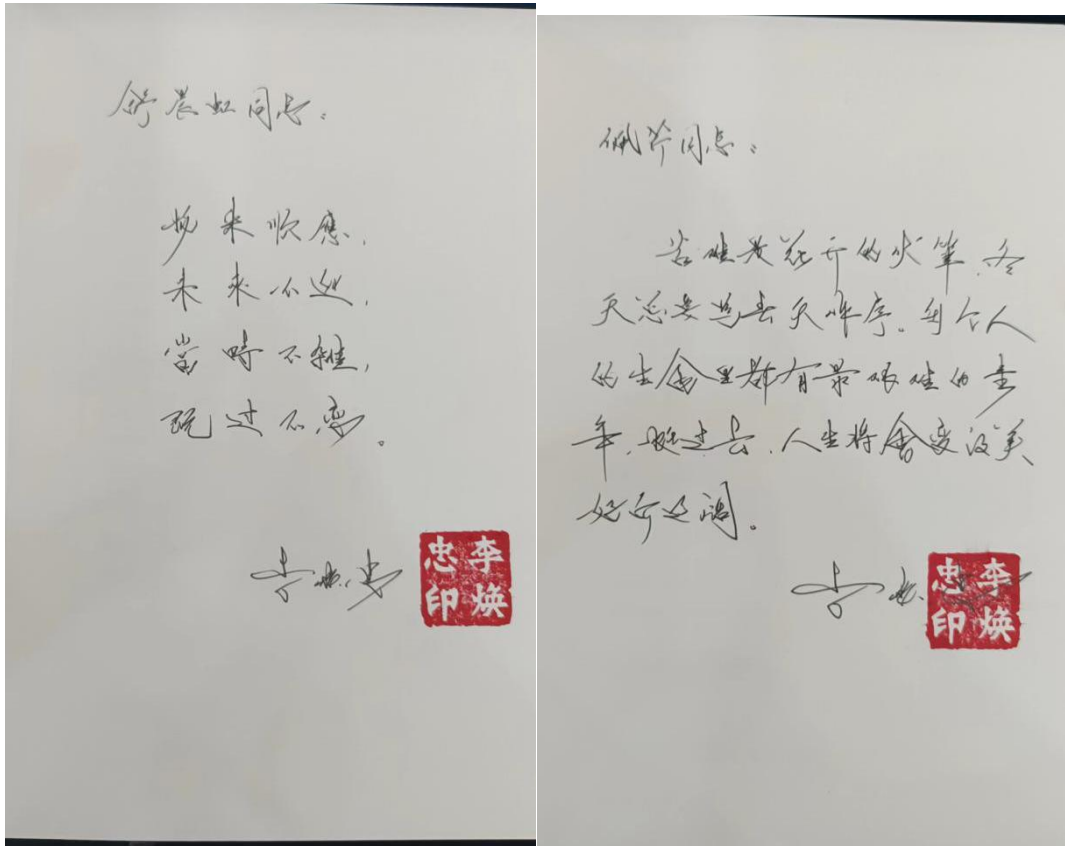 舒晨虹同志：
物来顺應，
未来不迎，
當時不雜，
既过不恋。
李焕忠
李焕忠印
佩芬同志：
苦难是花开的伏笔，冬
天总要为春天作序。每个人
的生命里都有最艰难的
年，挺过去，人生将會变得美
好而辽阔。
李焕忠
李焕忠印